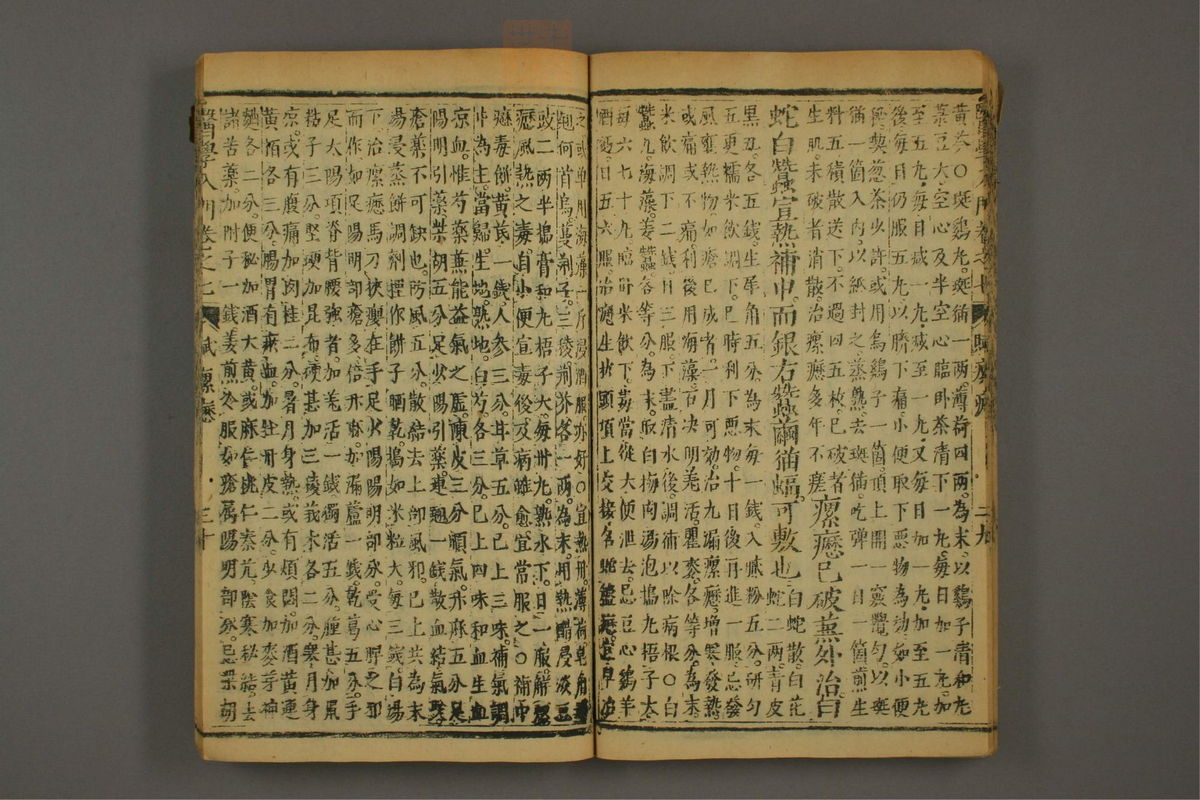 黃芩○斑鷄丸斑猫一兩薄荷四兩為末以鷄子清和丸
菉豆大空心及半空心臨卧茶清下一丸每日加一丸加
至五丸每日减一丸减至一丸又每日加一丸加至五丸
後每日仍服五丸以臍下痛小便取下悪物為効如小便
澁喫葱茶少許或用烏鷄子一箇頂上開一竅攪勻以斑
猫一箇入內以紙封之蒸熟去斑猫吃彈一日一箇煎生
料五積散送下不過四五枚已破者
生肌未破者消散治瘰癧多年不瘥瘰癧已破蕪外治白
蛇白蠶宣熱補中而銀右蠶繭猫蝠可敷也白蛇散白花蛇二兩青皮
黑丑各五錢生犀角五分為末每一錢入膩粉五分研勻
五更糯米飲調下巳時利下悪物十日後再進一服忌發
風壅熱物如瘡已成者一月可効治九漏瘰癧增寒發熱
或痛或不痛利後用海藻石决明羌活瞿麥各等分為末
米飲調下二錢日三服下盡清水後調補以除病根○白
蠶丸海藻姜蠶各等分為末取白梅肉湯泡搗丸梧子大
每六七十丸臨卧米飲下毒當從大便泄去忌豆心鷄羊
酒麪日五六服治癧生於頸項上交接名蛇盤癧宜早治
之或单用海藻一斤浸酒服亦好○宜熱丹薄荷皂角
麹何首烏蔓荆子三稜荆芥各一兩為末用熱醋浸淡豆
豉二兩半搗膏和丸梧子大每卅丸熱水下日一服解
癧風熱之毒自小便宣毒後反病雖愈宜常服之○補中
癧毒餅黃芪一錢人參三分甘草五分已上三味補氣調
中為主當歸生地熟地白芍各三分已上四味和血生血
凉血惟芍藥蕪能益氣之虛陳皮三分順氣升麻五分足
陽明引藥柴胡五分足少陽引藥連翹一錢散血結氣聚
瘡藥不可缺也防風五分散結去上部風邪已上共為末
湯浸蒸餅調劑捏作餅子晒乾搗如米粒大每三錢白湯
下治瘰癧馬刀挾癭在手足少陽陽明部分受心脾之邪
而作如足陽明部瘡多倍升麻加漏蘆一錢乾葛五分手
足太陽項脊背腰強者加羌活一錢獨活五分腫甚加鼠
粘子三分堅硬加昆布硬甚加三稜莪朮各二分寒月身
凉或有腹痛加肉桂二分暑月身熱或有煩悶加酒黃連
黃栢各三分腸胃有瘀血加牡丹皮二分少食加麥芽神
麯各二分便秘加酒大黃或麻仁桃仁秦艽陰寒秘結去
諸苦藥加附子一錢姜煎冷服如瘡属陽明部分忌柴胡
醫學入門卷之七 賦 瘰癧 三十
二十九